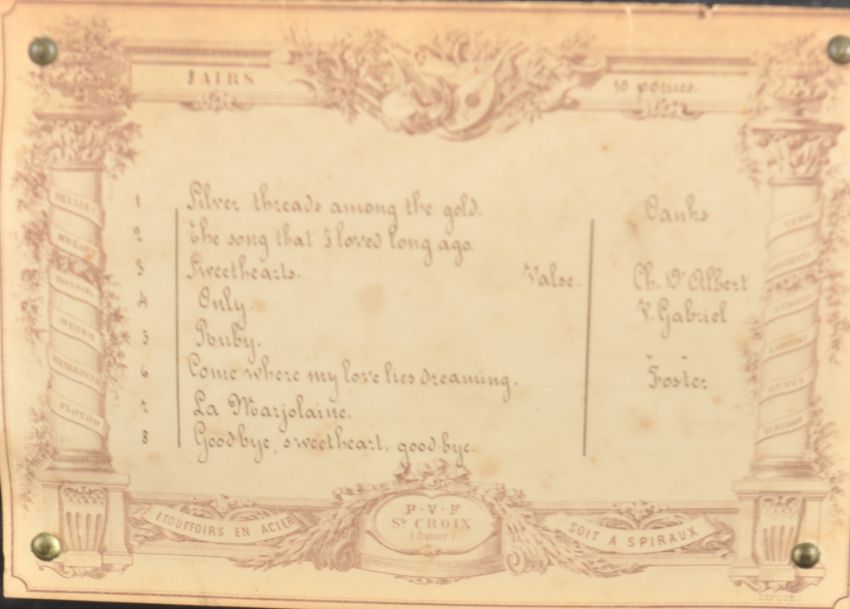 8 AIRS
10 pouces.
1 Silver threads among the gold. Danks
2 The song that I loved long ago
3 Sweethearts. Valse. Ch. D'Albert
4 Only V. Gabriel
5 Ruby. " "
6 Come where my love lies dreaming. Foster
7 La Marjolaine.
8 Goodbye, sweetheart, goodbye.
BELLINI
MOZART
ROSSINI
MEYERBEER
FLOTOW
P·V·F
Ste CROIX
(Suisse)
ETOUFFOIRS EN ACIER
SOIT A SPIRAUX